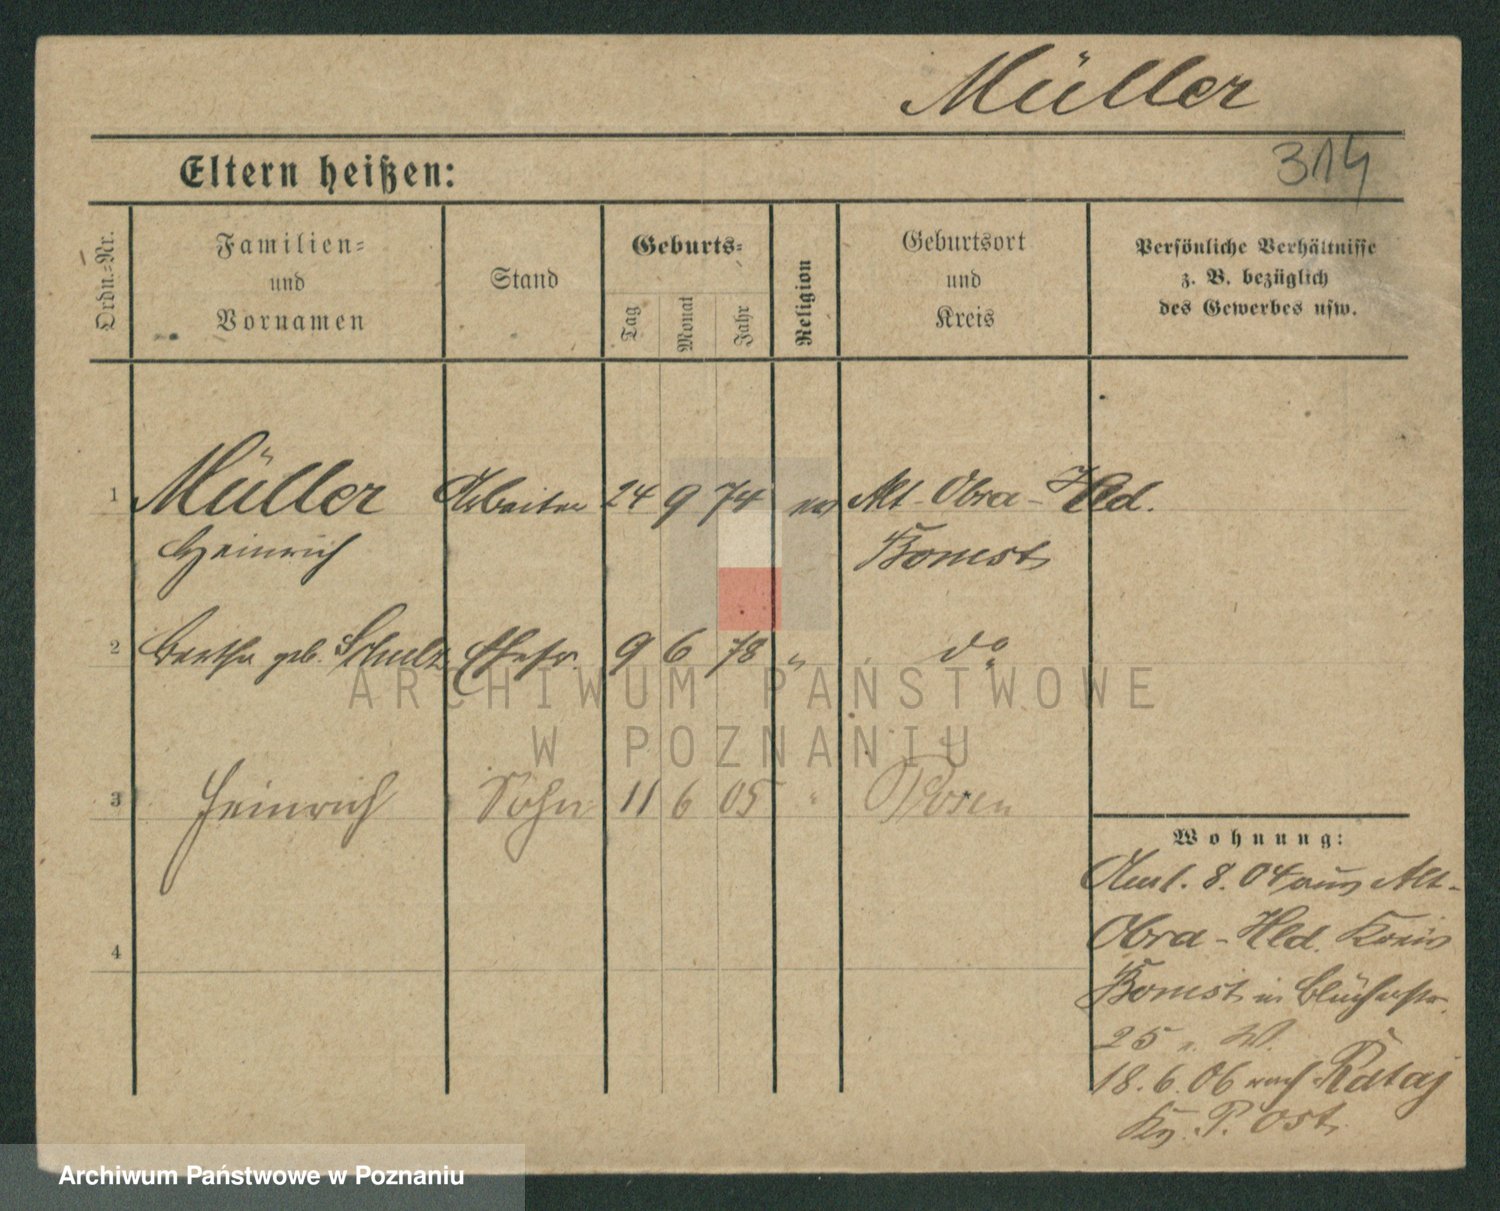 Müller
314
Eltern heißen:
Ordn.-Nr.
Familien-
und
Vornamen
Stand
Geburts-
Tag
Monat
Jahr
Religion
Geburtsort
und
Kreis
Persönliche Verhältnisse
z. B. bezüglich
des Gewerbes usw.
1 Müller Arbeiter 24 9 74 ev Alt-Obra-Hld.
Heinrich Bomst
2 Bertha geb. Schulz Ehefr. 9 6 78 " do
ARCHIWUM PAŃSTWOWE
W POZNANIU
3 Heinrich Sohn 11 6 05 " Posen
4
Wohnung:
8. 04 aus Alt-
Obra-Hld. Kreis
Bomst in Blücherstr.
25 W.
18.6.06 nach Rataj
P. Ost.
Archiwum Państwowe w Poznaniu